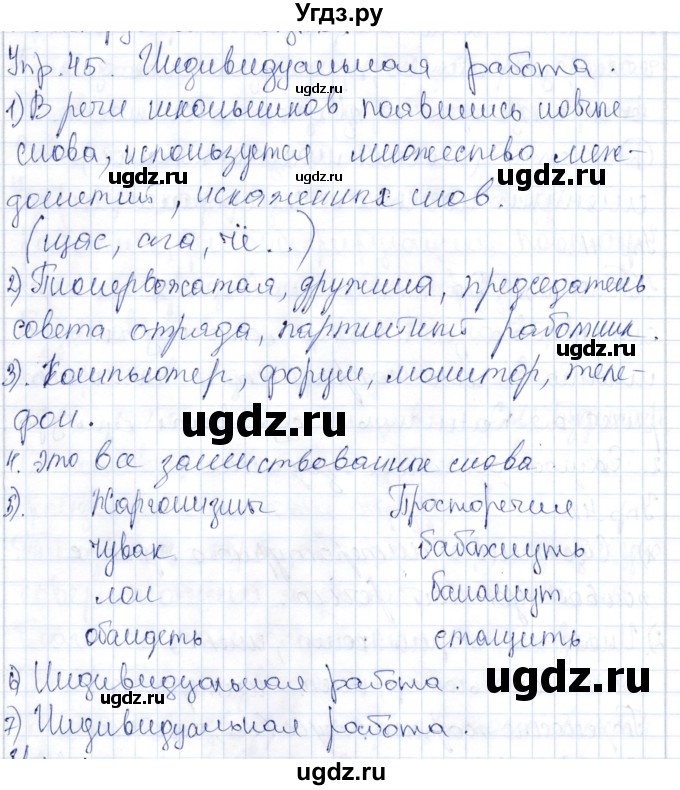 Угдз.ру
Упр. 45. Индивидуальная работа.
ugdz.ru
1) В речи школьников появились новые
слова, используется множество меж-
ugdz.ru ugdz.ru
дометий, искаженных слов.
(щас, ага, чё...)
2) Пионервожатая, дружина, председатель
совета отряда, партийный работник.
ugdz.ru
3). Компьютер, форум, монитор, теле-
фон.
ugdz.ru
4. Это все заимствованные слова.
5). Жаргонизмы Просторечия
чувак бабахнуть
лол баламут
ugdz.ru
обалдеть стащить
6) Индивидуальная работа.
ugdz.ru
ugdz.ru
7) Индивидуальная работа.
ugdz.ru